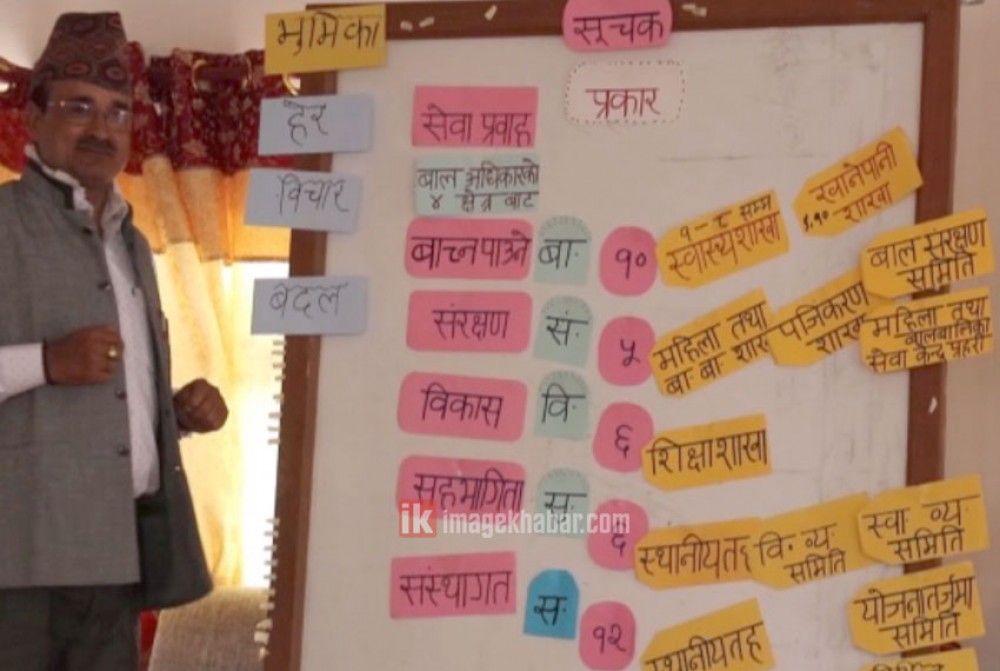 भूमिका
सूचक
प्रकार
हेर
विचार
बदल
सेवा प्रवाह
बाल अधिकारको
४ क्षेत्र बाट
बाच्नपाउने बा. १०
१ - ८ सम्म
स्वास्थ्यशाखा
खानेपानी
९,१० - शाखा
बाल संरक्षण
समिति
संरक्षण सं. ५
महिला तथा
बा. बा. शाखा
पंजिकरण
शाखा
महिला तथा
बालबालिका
सेवा केन्द्र प्रहरी
विकास वि. ६
शिक्षा शाखा
सहभागिता स. ६
स्थानीय तह
वि. व्य.
समिति
स्वा. व्य.
समिति
ik imagekhabar.com
संस्थागत स. १२
स्थानीय तह
योजना तर्जुमा
समिति